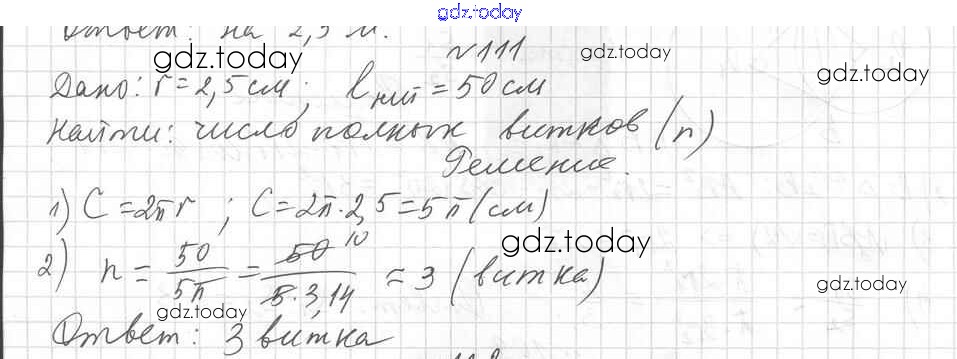 gdz.today
Ответ: на 2,5 м.
№111
gdz.today gdz.today gdz.today
Дано: r=2,5 см; lнит=50 см
Найти: число полных витков (n)
Решение.
1) C=2πr; C=2π·2,5=5π (см)
gdz.today
2) n = 50/5π = 50 10/5·3,14 = 3 (витка)
gdz.today gdz.today
Ответ: 3 витка